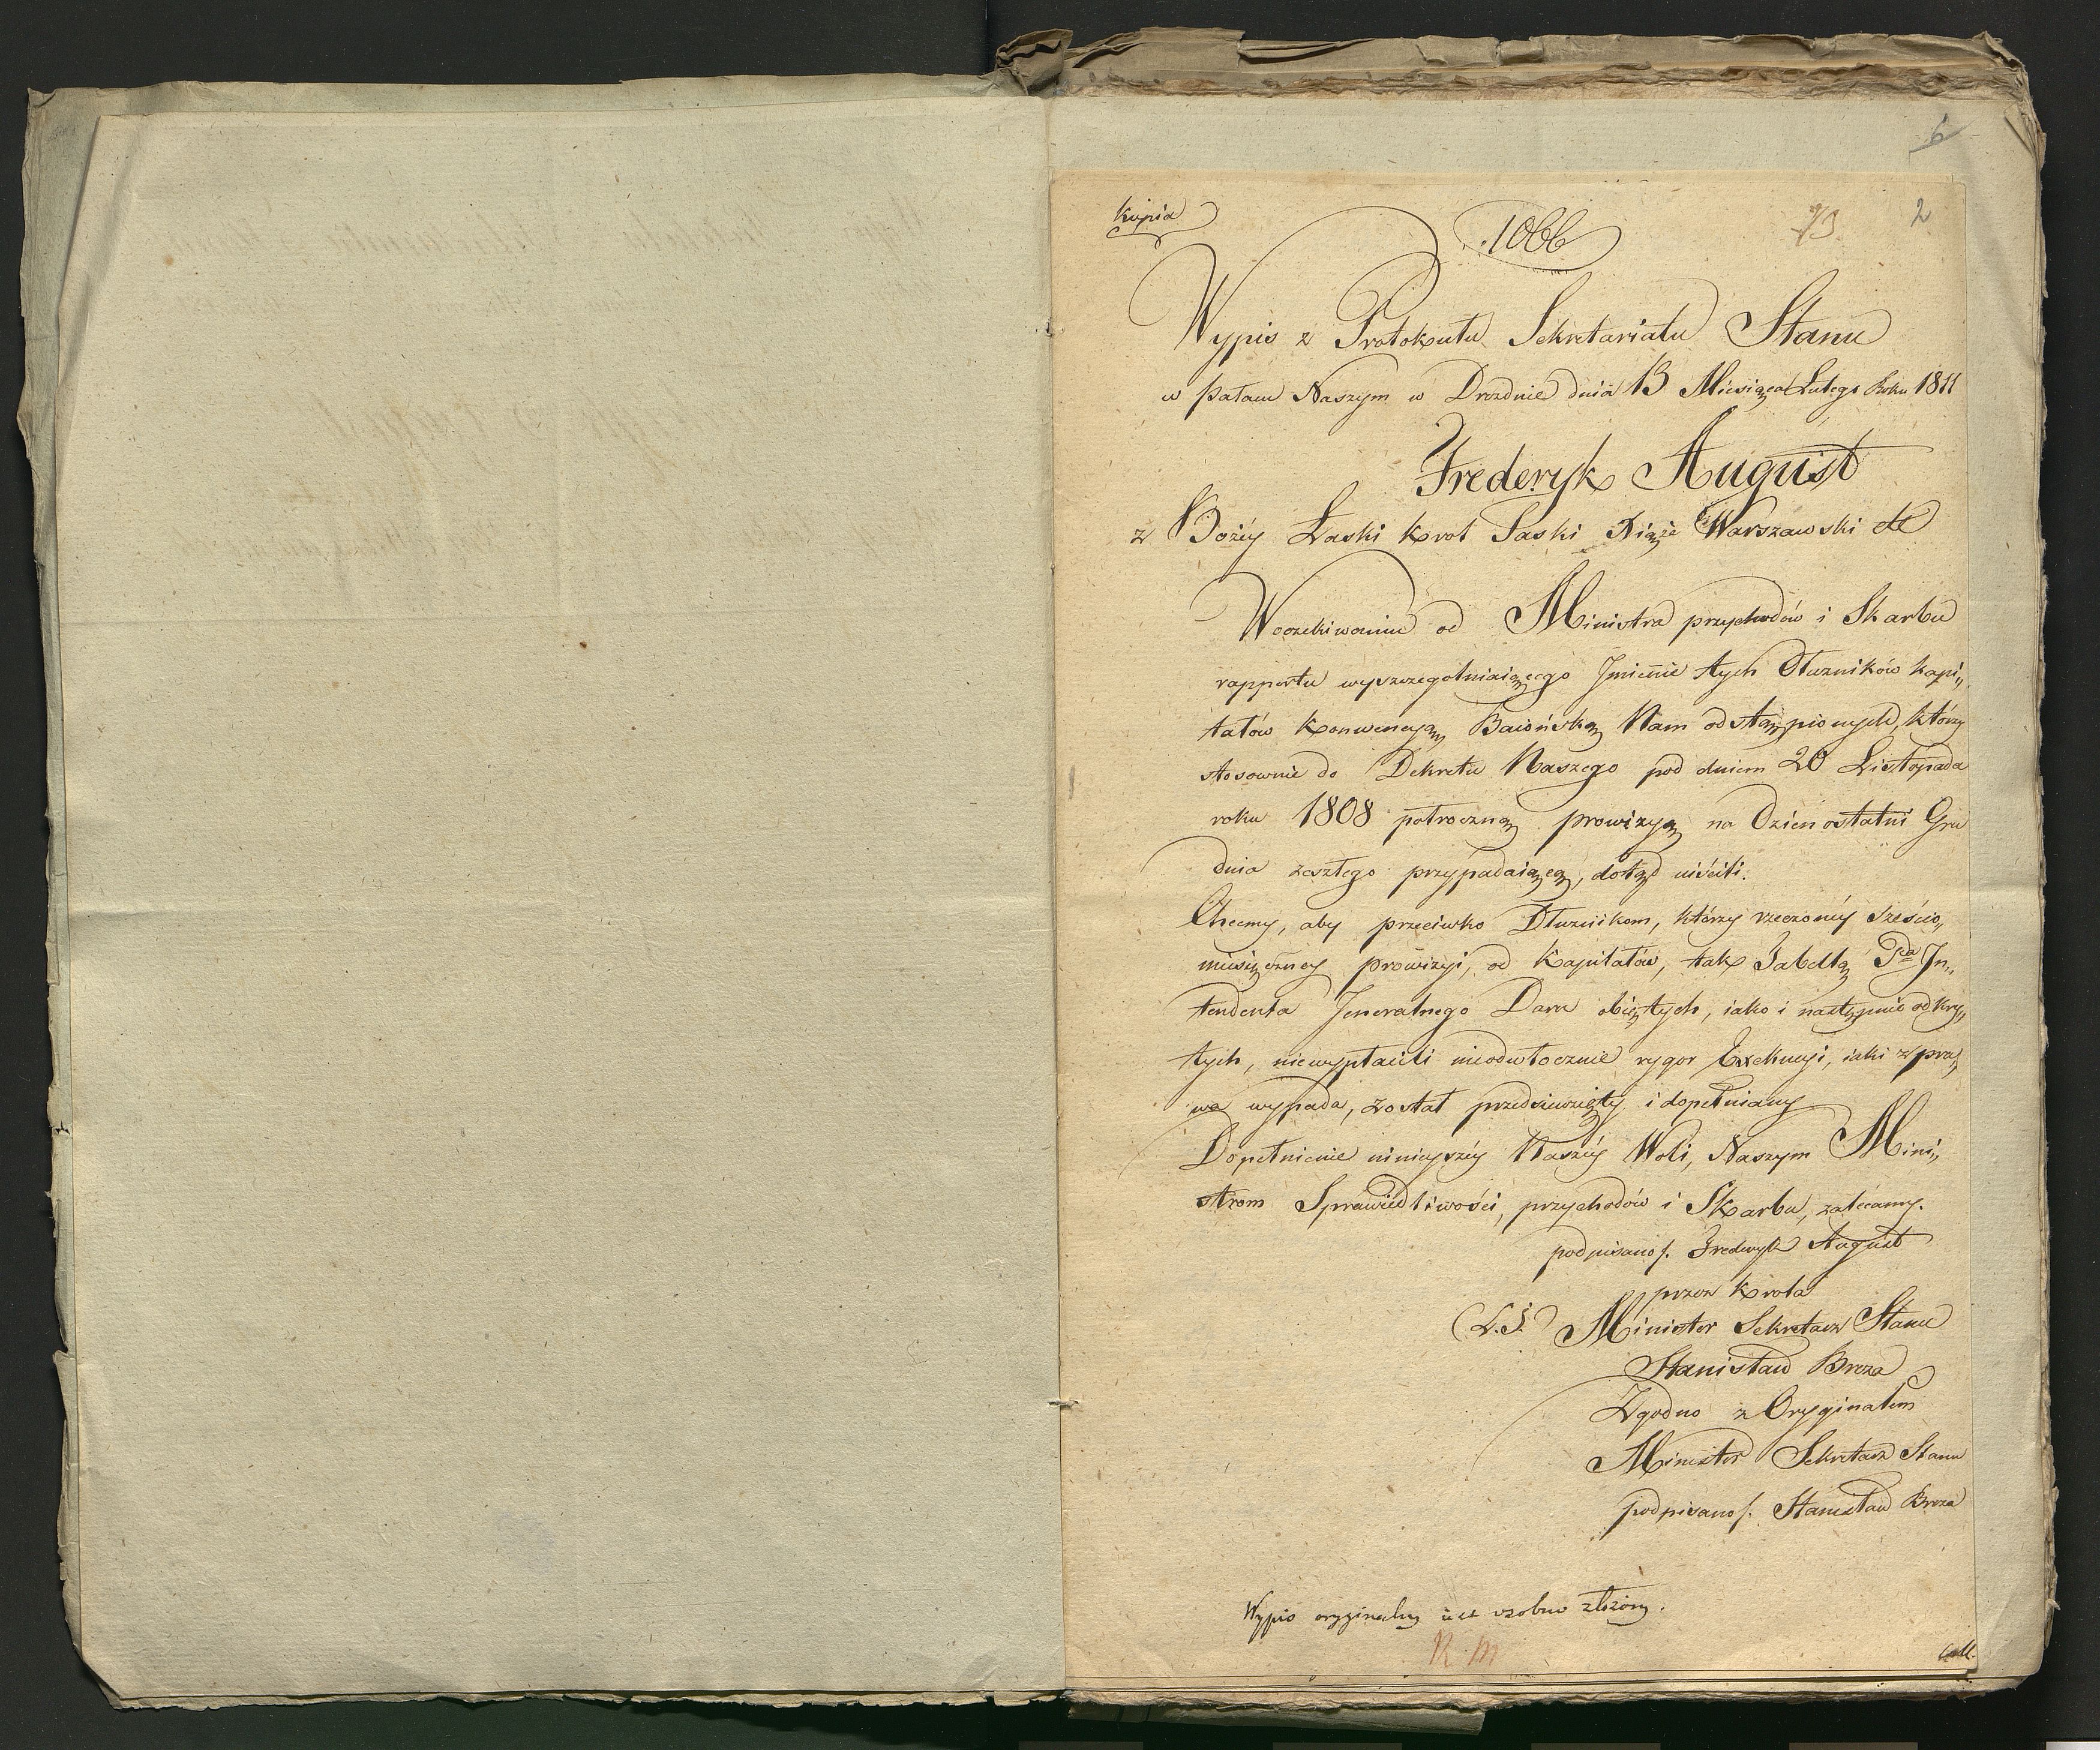 6
Kopia
1066
73
2
Wypis z Protokułu Sekretariatu Stanu
w Pałacu Naszym w Dreźnie dnia 13 Miesiąca Lutego Roku 1811
Frederyk August
z Bożey Łaski Krol Saski Xiąże Warszawski etc
W oczekiwaniu od Ministra przychodów i Skarbu
rapportu wyszczegolniaiącego Jmiennie tych Dłużników kapi„
tałów Konwencyą Baiońską Nam odstąpionych, którzy
stosownie do Dekretu Naszego pod dniem 20 Listopada
roku 1808 połroczną prowizyą na Dzień ostatni Gru
dnia zeszłego przypadaiącą, dotąd uiścili.
Chcemy, aby przeciwko Dłużnikom, którzy rzeczonéy sześcio„
miesięczney prowizyi, od Kapitałów, tak Tabellą Pa Jn„
tendenta Jeneralnego Daru obiętych, iako i następnie odkry„
tych, niewypłacili nieodwłocznie rygor Exekucyi, iaki z pra„
wa wypada, został przedsiewzięty i dopełniany
Dopełnienie ninieyszéy Naszéy Woli, Naszym Mini„
strom Sprawiedliwości, przychodów i Skarbu, zalecamy.
podpisano/. Frederyk August
przez Krola
(L.S.) Minister Sekretarz Stanu
Stanisław Breza
Zgodno z Oryginałem
Minister Sekretarz Stanu
podpisano/. Stanisław Breza
Wypis oryginalny iest osobno złożony.
R. M
Coll.